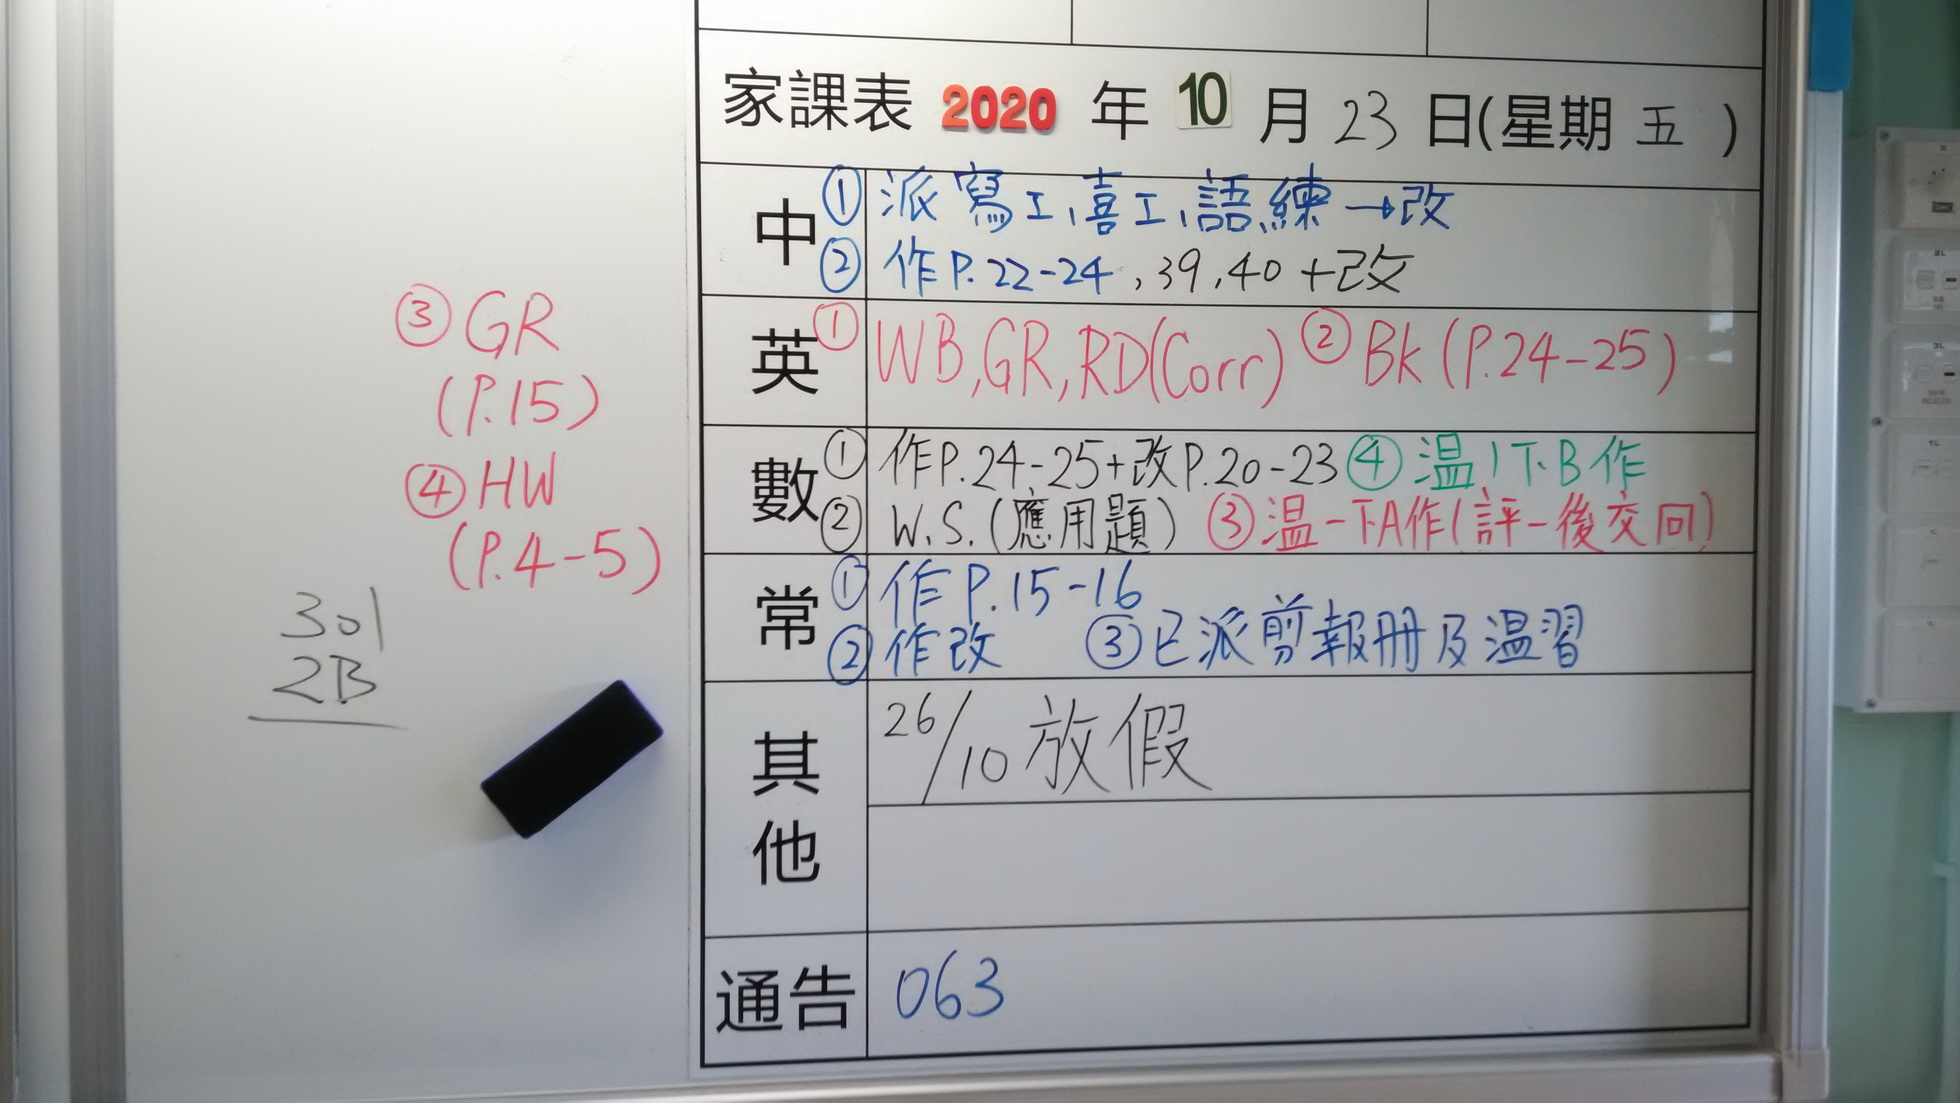 家課表 2020 年 10 月 23 日(星期 五 )
中
① 派寫工、喜工、語練→改
② 作P.22-24,39,40+改
英
① WB,GR,RD(Corr) ② Bk (P.24-25)
③ GR
(P.15)
④ HW
(P.4-5)
數
① 作P.24-25+改P.20-23 ④ 温1下B作
② W.S.(應用題) ③ 温一下A作(評一後交回)
常
① 作P.15-16
② 作改 ③ 已派剪報冊及温習
其他
26/10 放假
通告
063
301
2B